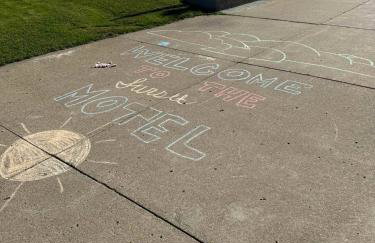 WELCOME
TO THE
MOTEL